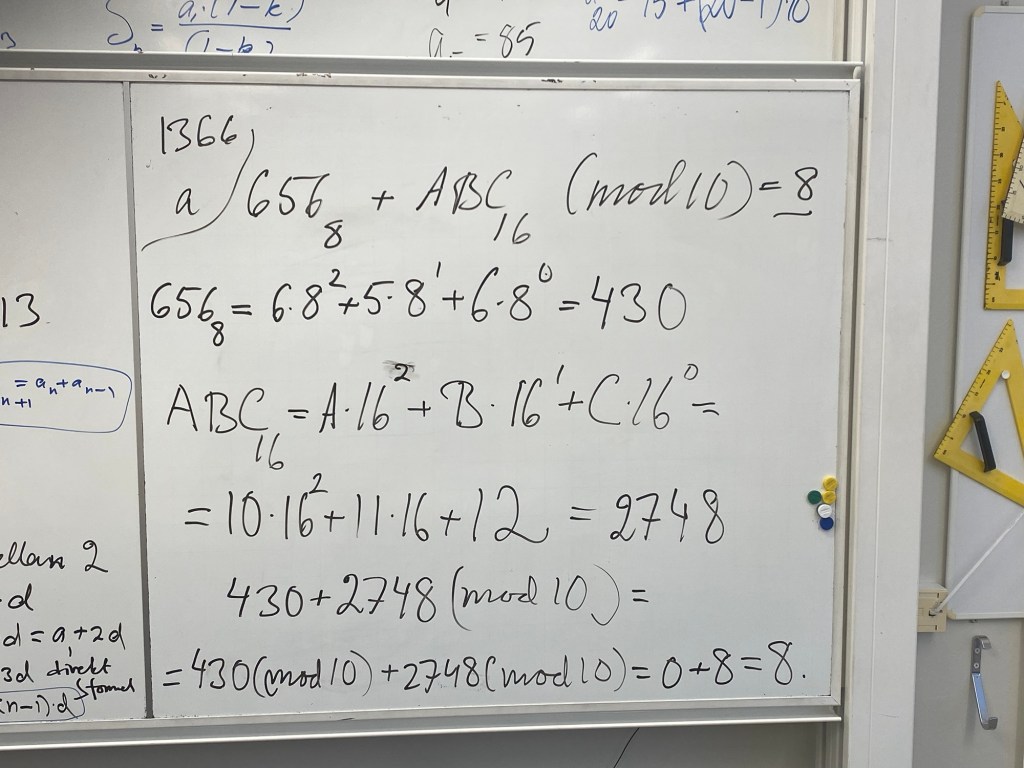 Sₙ = a₁·(1-k.)
(1-k)
a = 85
20 = 15 + (20-1)·10
1366
a) 656₈ + ABC₁₆ (mod 10) = 8
656₈ = 6·8² + 5·8¹ + 6·8⁰ = 430
ABC₁₆ = A·16² + B·16¹ + C·16⁰ =
= 10·16² + 11·16 + 12 = 2748
430 + 2748 (mod 10) =
= 430 (mod 10) + 2748 (mod 10) = 0 + 8 = 8.
13
n+1 = aₙ + aₙ₋₁
2
·d
d = a₁ + 2d
3d direkt
formel
(n-1)·d